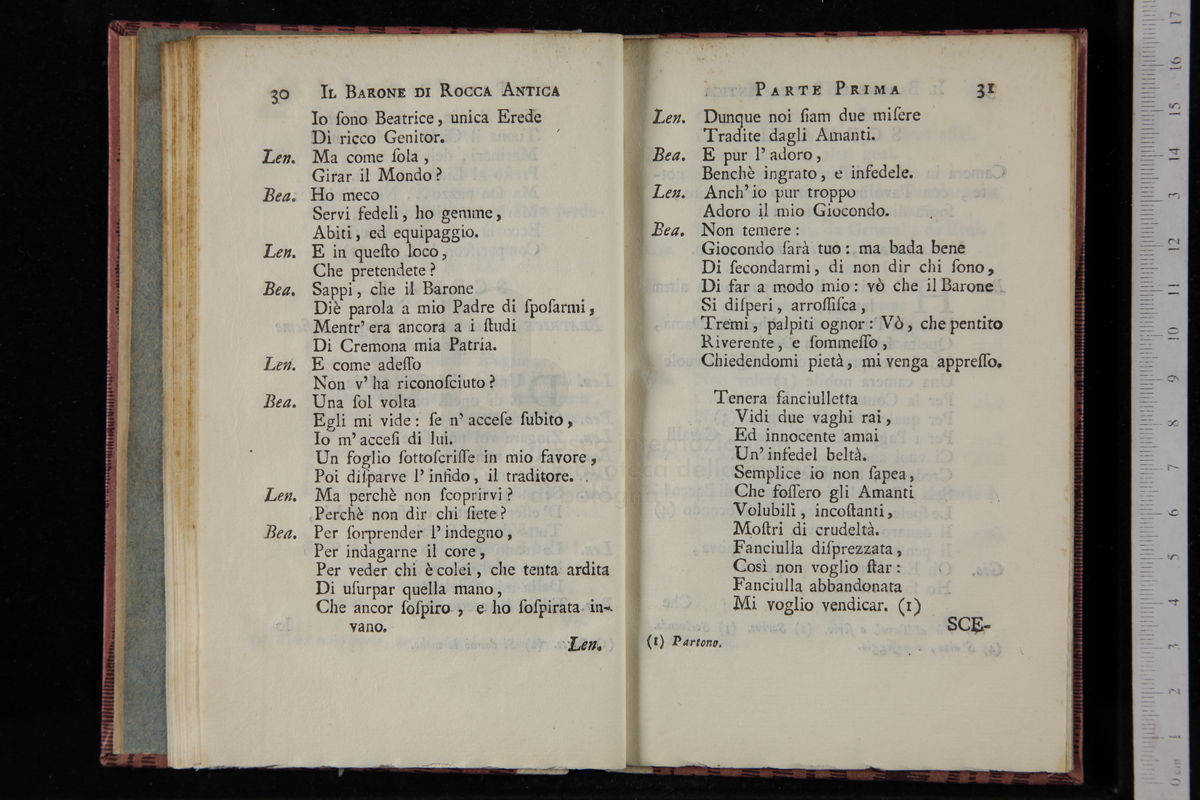 30 Il Barone di Rocca Antica
Io ſono Beatrice, unica Erede
Di ricco Genitor.
Len. Ma come ſola,
Girar il Mondo?
Bea. Ho meco
Servi fedeli, ho gemme,
Abiti, ed equipaggio.
Len. E in queſto loco,
Che pretendete?
Bea. Sappi, che il Barone
Diè parola a mio Padre di ſpoſarmi,
Mentr' era ancora a i ſtudi
Di Cremona mia Patria.
Len. E come adeſſo
Non v' ha riconoſciuto?
Bea. Una ſol volta
Egli mi vide: ſe n' acceſe ſubito,
Io m' acceſi di lui.
Un foglio ſottoſcriſſe in mio favore,
Poi diſparve l' infido, il traditore.
Len. Ma perchè non ſcoprirvi?
Perchè non dir chi ſiete?
Bea. Per ſorprender l' indegno,
Per indagarne il core,
Per veder chi è colei, che tenta ardita
Di uſurpar quella mano,
Che ancor ſoſpiro, e ho ſoſpirata in-
vano.
Len.
Parte Prima 31
Len. Dunque noi ſiam due miſere
Tradite dagli Amanti.
Bea. E pur l' adoro,
Benchè ingrato, e infedele.
Len. Anch' io pur troppo
Adoro il mio Giocondo.
Bea. Non temere:
Giocondo ſarà tuo: ma bada bene
Di ſecondarmi, di non dir chi ſono,
Di far a modo mio: vò che il Barone
Si diſperi, arroſſiſca,
Tremi, palpiti ognor: Vò, che pentito
Riverente, e ſommeſſo,
Chiedendomi pietà, mi venga appreſſo.
Tenera fanciulletta
Vidi due vaghi rai,
Ed innocente amai
Un' infedel beltà.
Semplice io non ſapea,
Che foſſero gli Amanti
Volubili, incoſtanti,
Moſtri di crudeltà.
Fanciulla diſprezzata,
Così non voglio ſtar:
Fanciulla abbandonata
Mi voglio vendicar. (1)
SCE-
(1) Partono.
0 cm 1 2 3 4 5 6 7 8 9 10 11 12 13 14 15 16 17